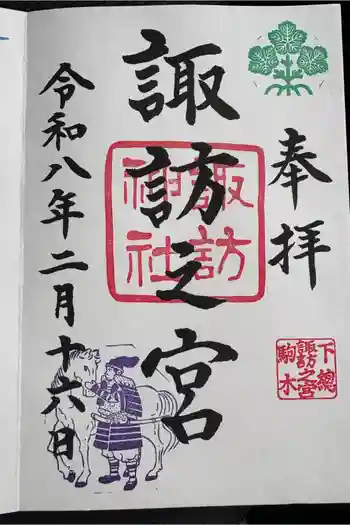 奉拝
諏訪之宮
令和八年二月十六日
諏訪
神社
下総
諏訪之宮
駒木